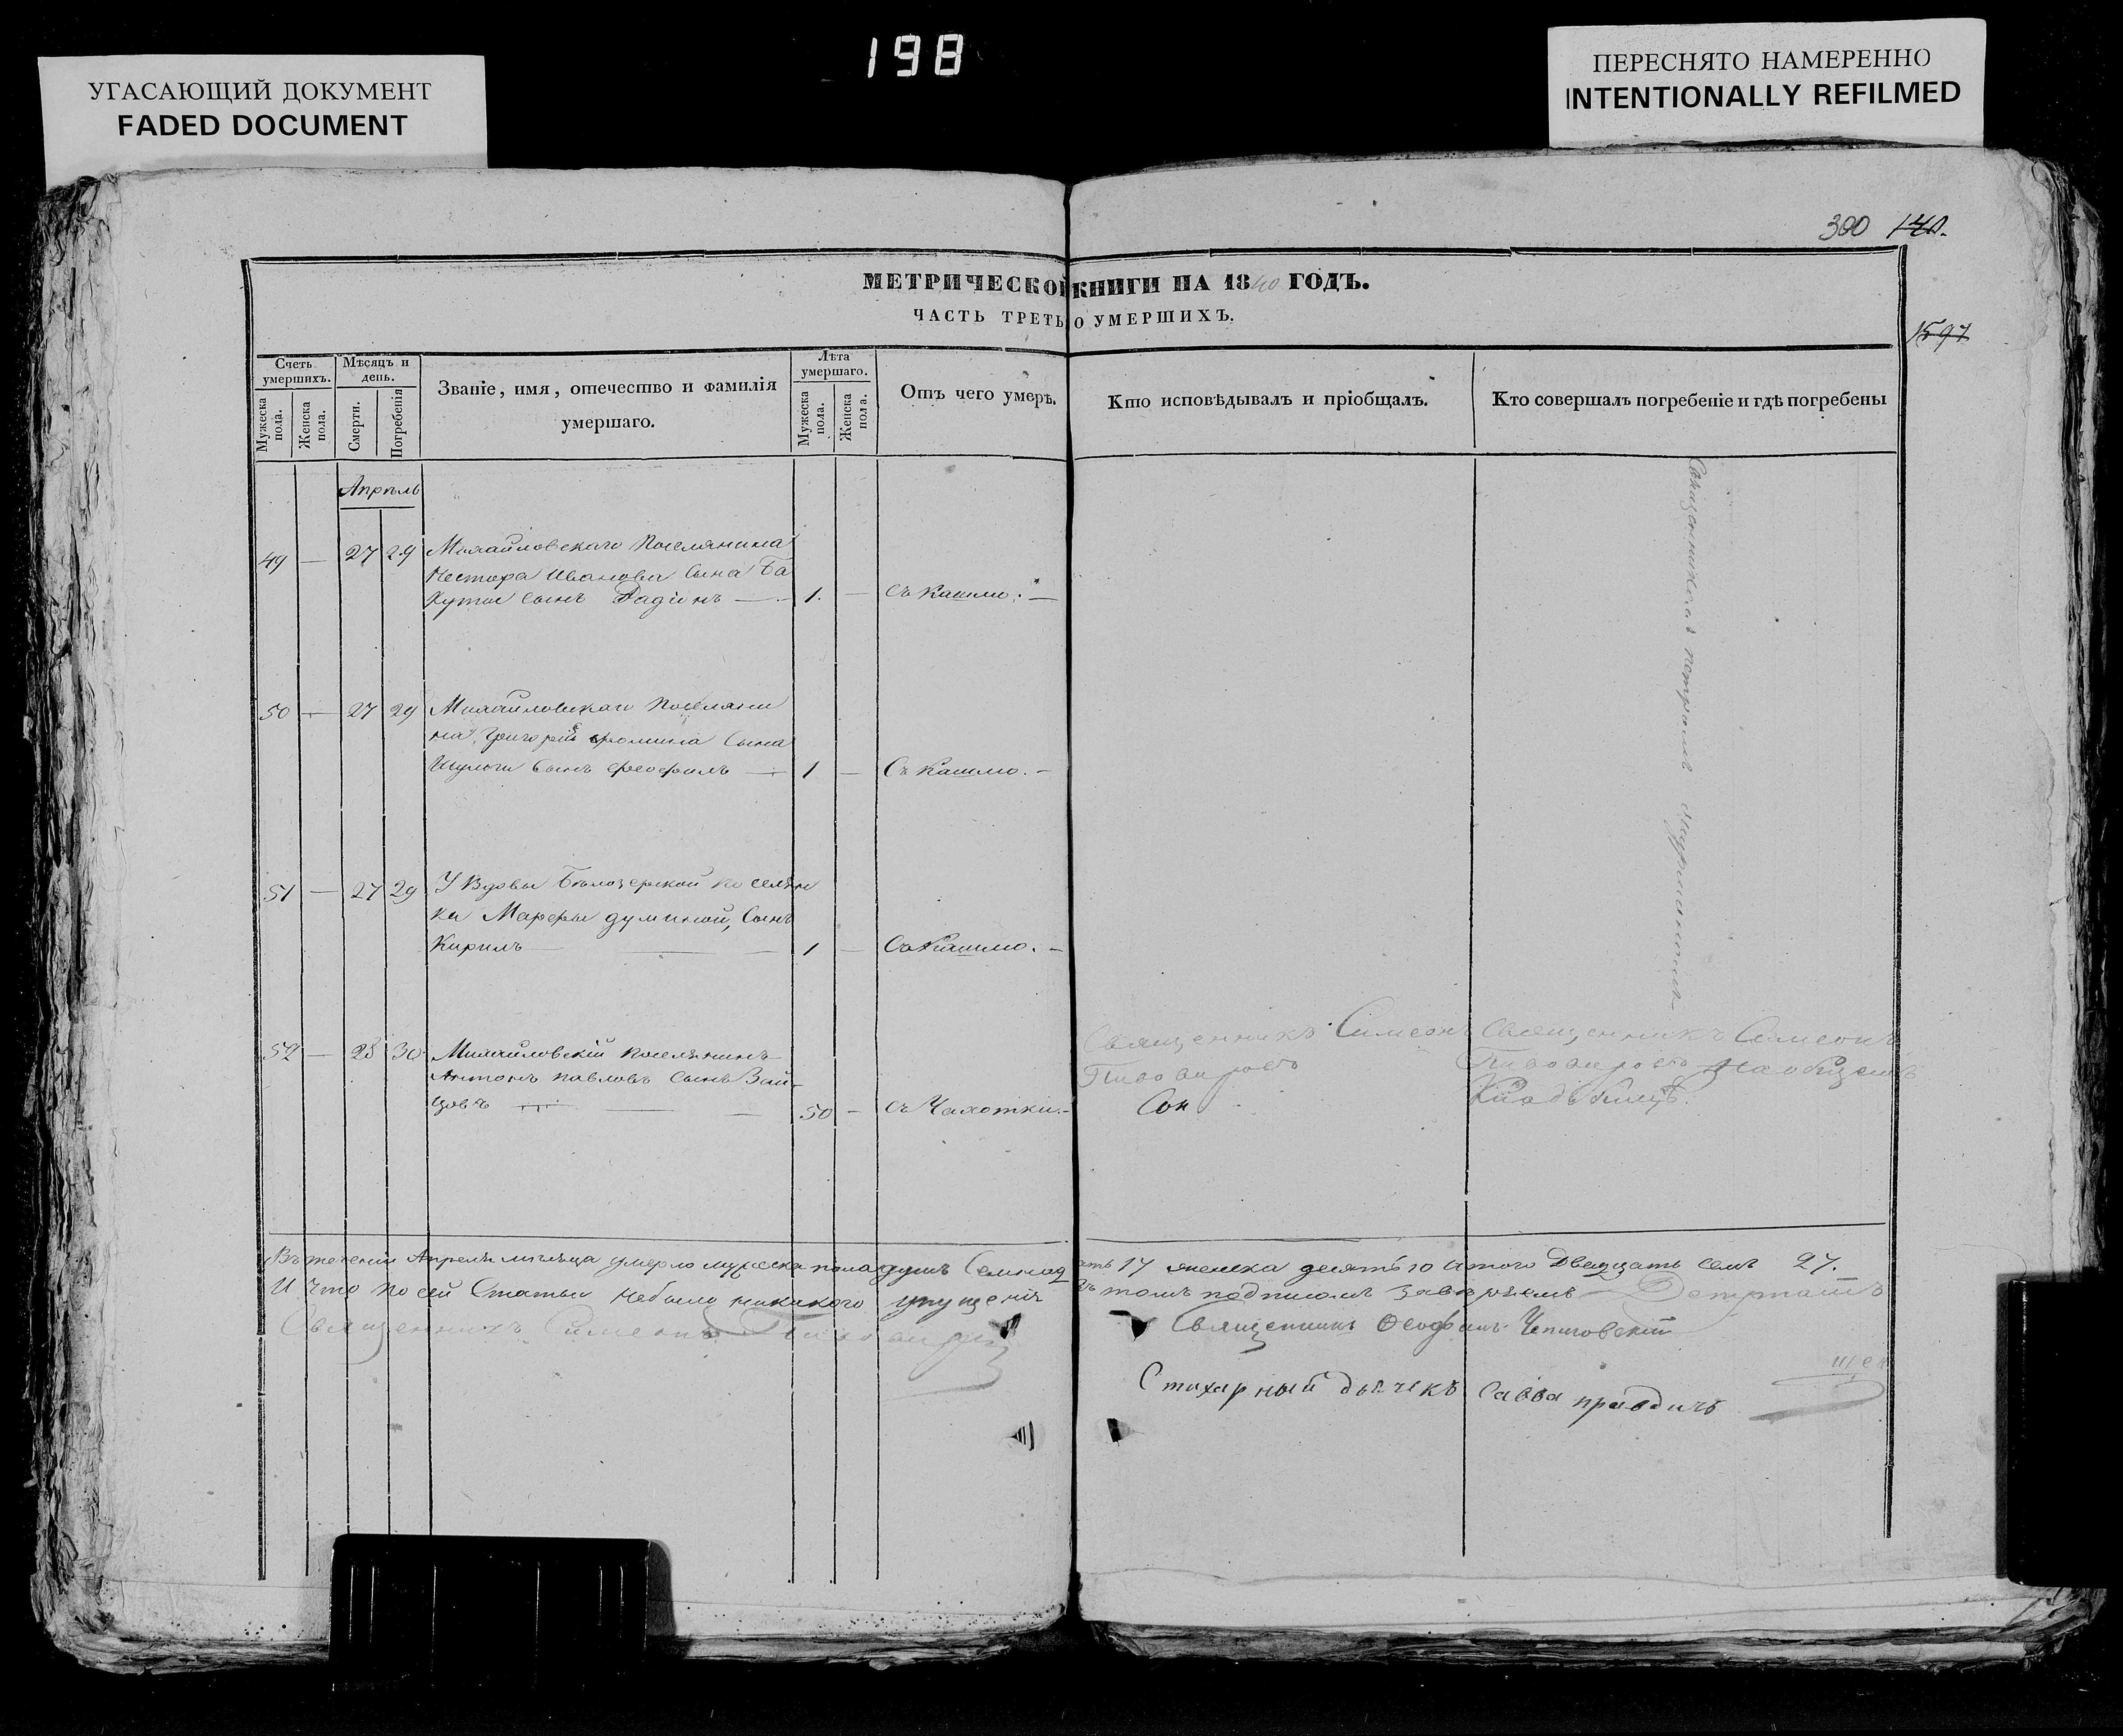 198
УГАСАЮЩИЙ ДОКУМЕНТ
FADED DOCUMENT
ПЕРЕСНЯТО НАМЕРЕННО
INTENTIONALLY REFILMED
300 140.
МЕТРИЧЕСКОЙ КНИГИ НА 1840 ГОДЪ.
ЧАСТЬ ТРЕТЬ О УМЕРШИХЪ.
1597
Счетъ умершихъ.
Мужеска пола.
Женска пола.
Мѣсяцъ и день.
Смерти.
Погребенія
Званіе, имя, отечество и фамилія
умершаго.
Лѣта умершаго.
Мужеска пола.
Женска пола.
Отъ чего умеръ.
Кто исповѣдывалъ и пріобщалъ.
Кто совершалъ погребеніе и гдѣ погребены
Апрѣль
49 — 27 29 Михайловскаго поселянина
Нестора Иванова сына Ба
хуты сынъ — 1. — съ кашлю. —
50 — 27 29 Михайловскаго поселяни
на Григорія Фомина сына
Шулоги сынъ Феофилъ — 1 — съ кашлю. —
51 — 27 29 У вдовы Бѣлозерской поселян
ки Марфы Думиной, сынъ
Кирилъ — 1 — съ кашлю. —
52 — 28 30 Михайловскій поселянинъ
Антонъ Павловъ сынъ Зай-
цовъ — 50 — съ чахотки. —
Священникъ Симеонъ
Пивоваровъ
Священникъ Симеонъ
Пивоваровъ на общемъ
Кладбищѣ.
Въ теченіи Апреля месяца умерло мужеска пола душъ семнадцать 17 женска десять 10 итого двадцать семъ 27.
И что по сей статьи небыло никакого упущенія въ томъ подписомъ завѣряемъ
Священникъ Симеонъ Пивоваровъ
Священникъ Ѳеофанъ
Стихарный дьячекъ Савва Правдичъ